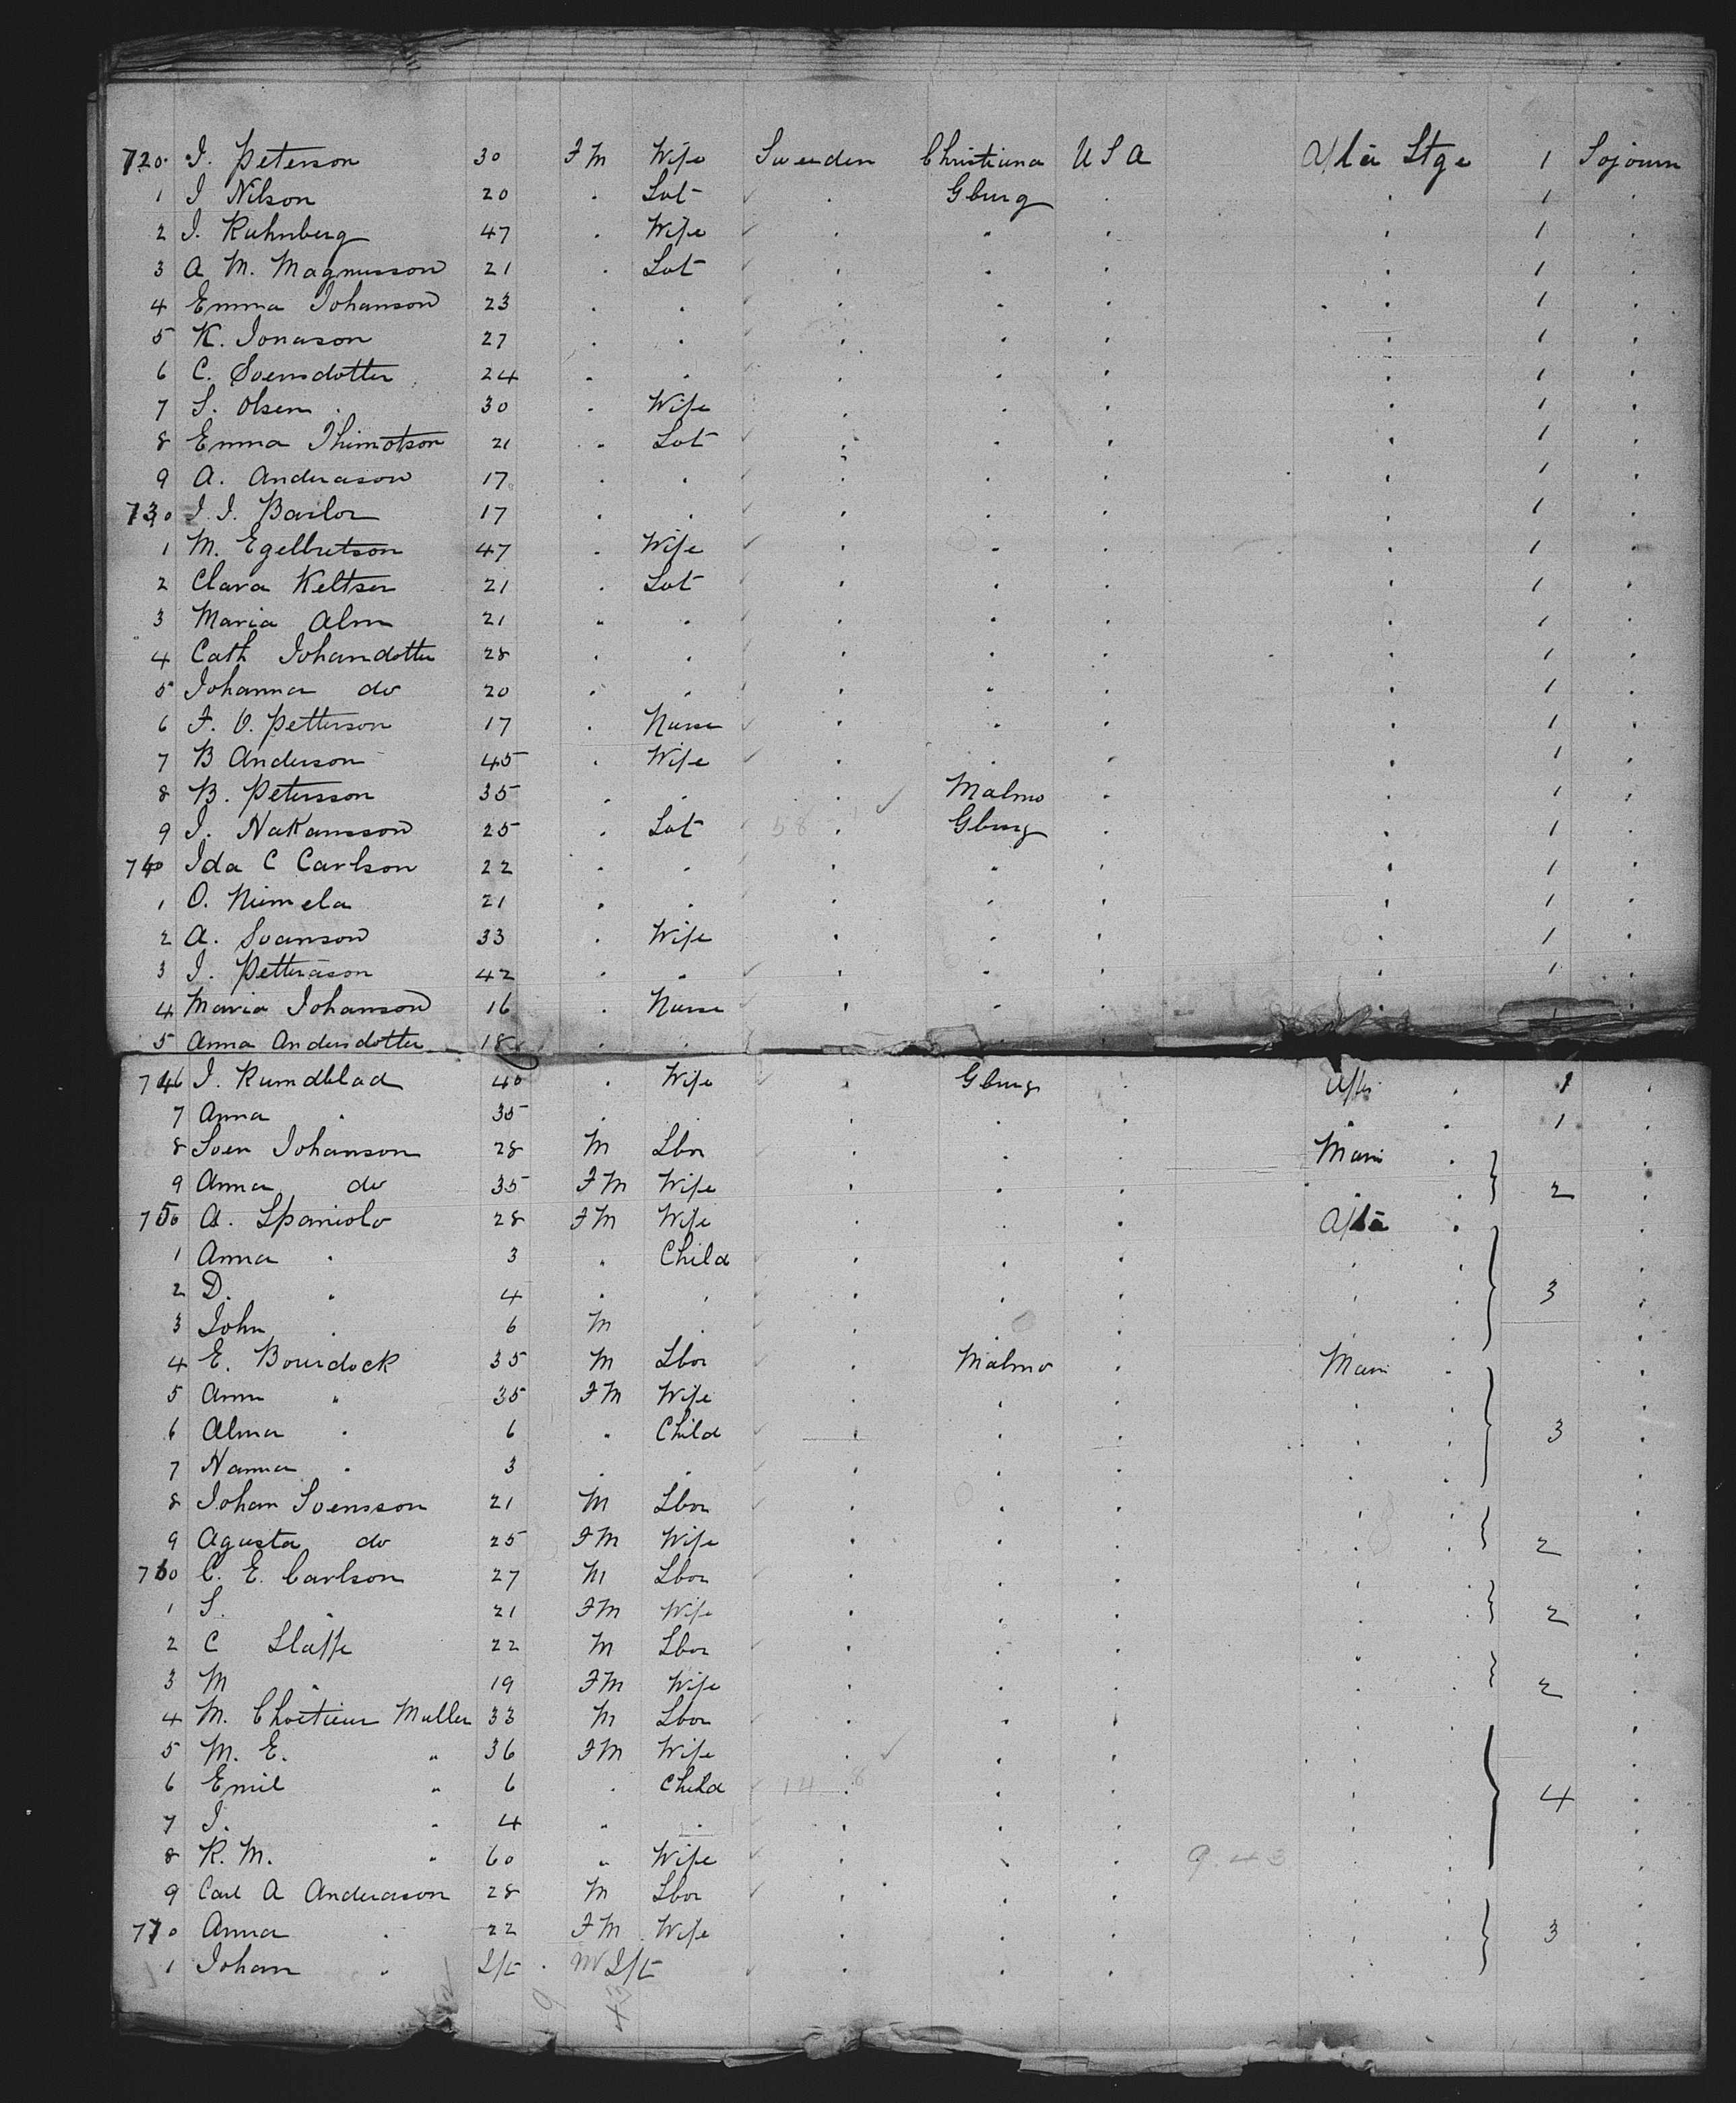 720 I. Peterson 30 FM Wife Sweeden Christiana U S A After Stge 1 Sojourn
1 I Nilson 20 . Lot . Gburg . . 1 .
2 I. Ruhnberg 47 . Wife . " . . 1 .
3 A. M. Magnusson 21 . Lot . . . . 1 .
4 Emma Johanson 23 . . . . . . 1 .
5 K. Jonason 27 . . . . . . 1 .
6 C. Svensdotter 24 . . . . . . 1 .
7 S. Olsen 30 . Wife . . . . 1 .
8 Emma Thimotson 21 . Lot . . . . 1 .
9 A. Anderason 17 . . . . . . 1 .
730 I. I. Bailor 17 . . . . . . 1 .
1 M. Egelbretson 47 . Wife . . . . 1 .
2 Clara Keltser 21 . Lot . . . . 1 .
3 Maria Alm 21 " . . . . . 1 .
4 Cath Johandotter 28 . . . . . . 1 .
5 Johanna do 20 . . . . . . 1 .
6 F. O. Petterson 17 . Nurse . . . . 1 .
7 B Anderson 45 . Wife . . . . 1 .
8 B. Petersson 35 . . . Malmo . . 1 .
9 I. Nakansson 25 . Lot 58 . Gburg . . 1 .
740 Ida C Carlson 22 . . . " . . 1 .
1 O. Niimela 21 . . . . . . 1 .
2 A. Svanson 33 . Wife . . . . 1 .
3 I. Petterason 42 . . . . . . 1 .
4 Maria Johanson 16 . Nurse . . . . 1 .
5 Anna Andersdotter 18 . . . .
746 I. Rundblad 40 . Wife . Gburg . After . 1 .
7 Anna . 35 . . . . . . . 1 .
8 Sven Johanson 28 M Lbor . . . Main . .
9 Anna do 35 FM Wife . . . . . } 2 .
750 A. Spaniolo 28 FM Wife . . . After . .
1 Anna . 3 " Child . . . . . .
2 D. . 4 . . . . . . . } 3 .
3 John . 6 M . . . . . . .
4 E. Bourdock 35 M Lbor . Malmo . Main . .
5 Ann " 35 FM Wife . . . . . .
6 Alma . 6 " Child . . . . . } 3 .
7 Nanna . 3 . . . . . . . .
8 Johan Svensson 21 M Lbor . . . . . .
9 Agusta do 25 FM Wife . . . . . } 2 .
760 C. E. Carlson 27 M Lbor . . . . . .
1 S. " 21 FM Wife . . . . . } 2 .
2 C Slaffe 22 M Lbor . . . . .
3 M " 19 FM Wife . . . . . } 2 .
4 M. Muller 33 M Lbor . . . . . .
5 M. E. " 36 FM Wife . . . . . .
6 Emil " 6 . Child 14 8 . . . . . } 4 .
7 I. . 4 " . . . . . . .
8 K. M. " 60 " Wife . . . 9.43 . . .
9 Carl A Anderason 28 M Lbor . . . . . .
770 Anna . 22 FM Wife . . . . . } 3 .
1 Johan . Ift . M Ift . . . . . .